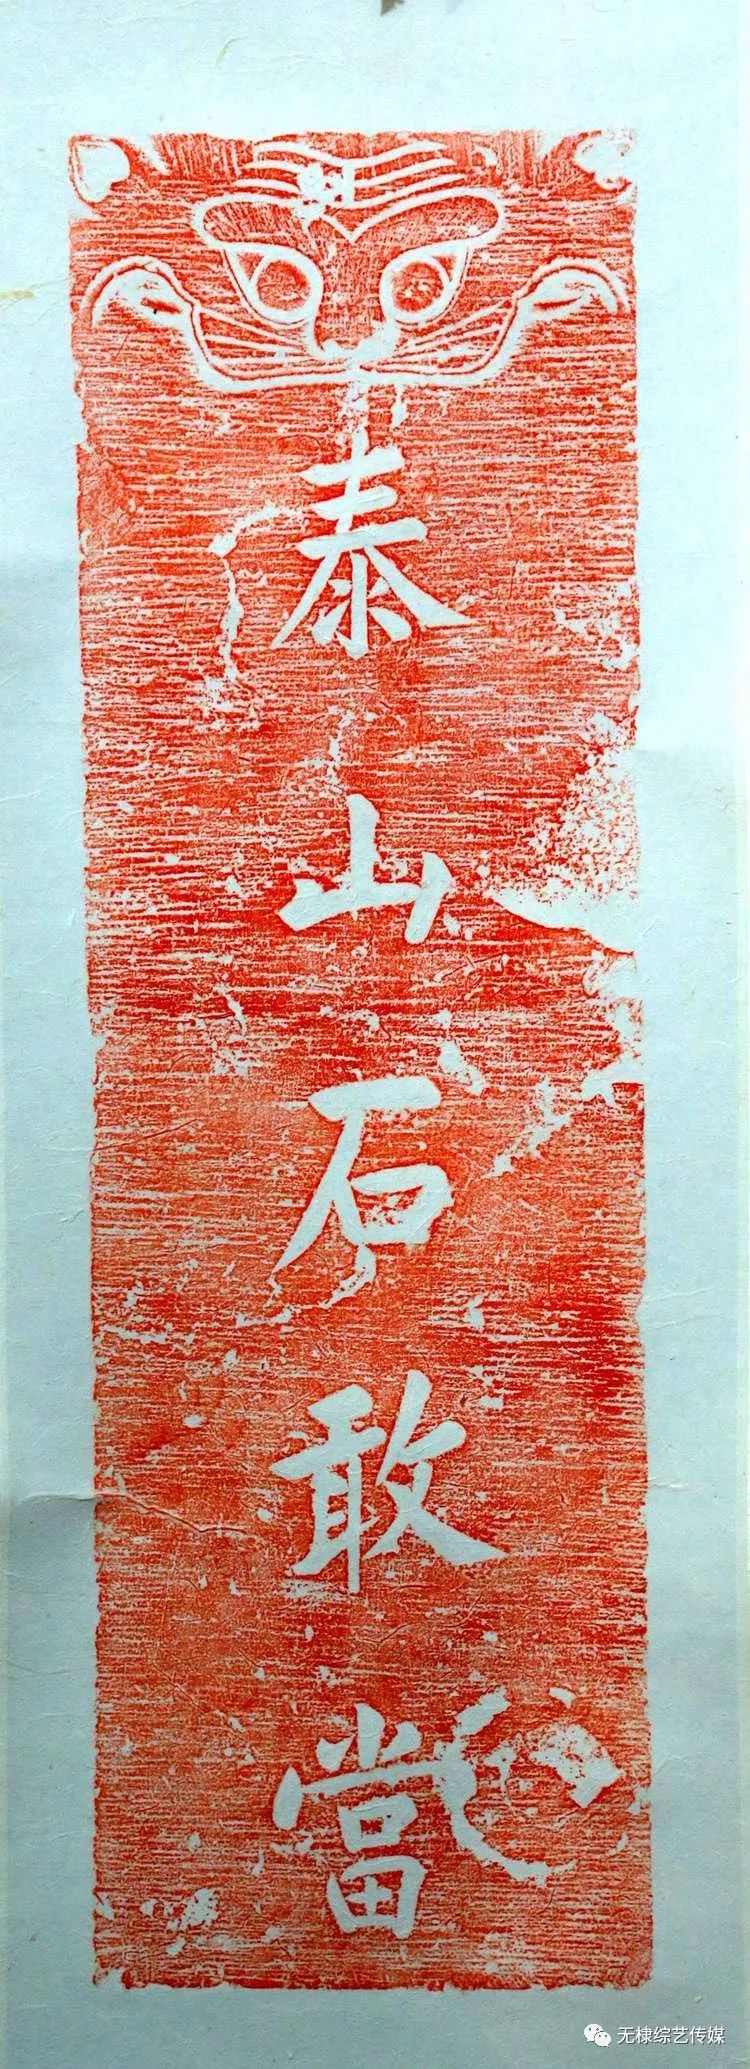 泰山石敢當
无棣综艺传媒